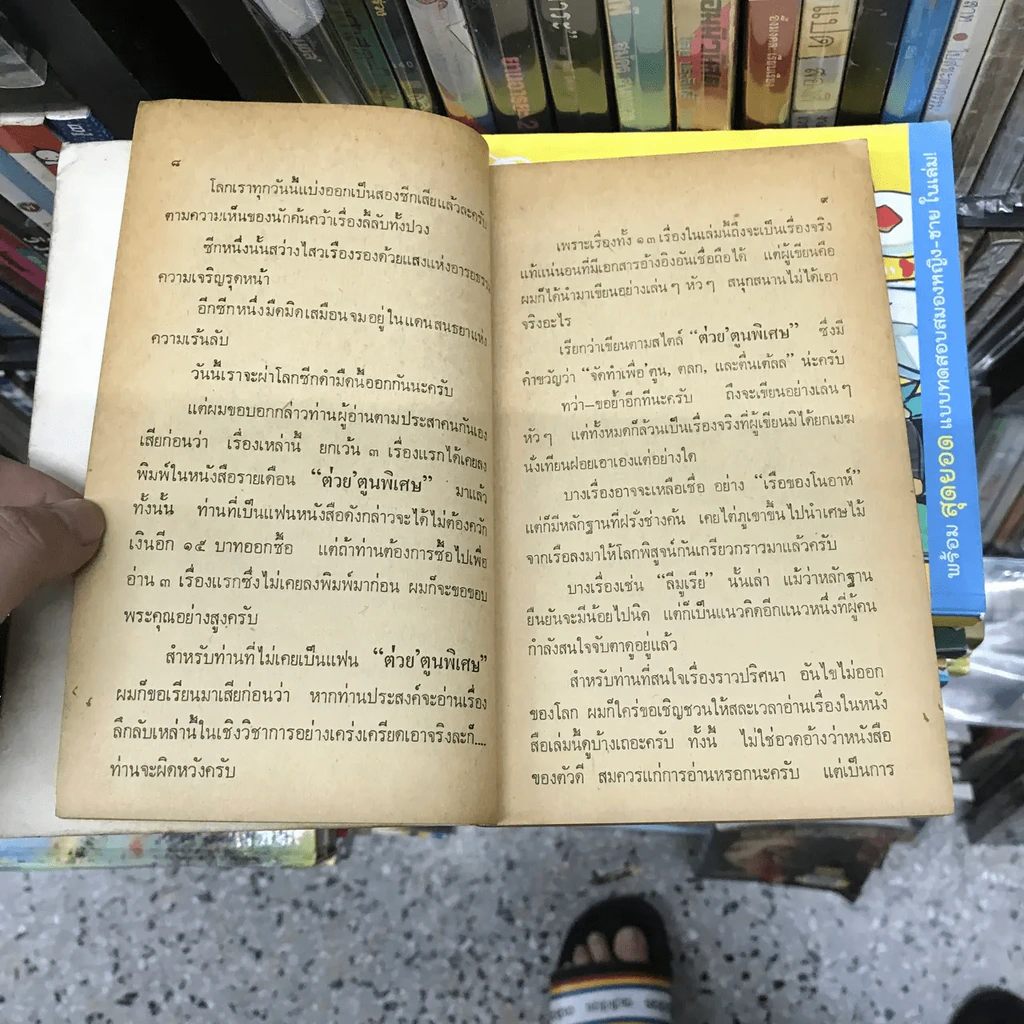 ๘
โลกเราทุกวันนี้แบ่งออกเป็นสองซีกเสียแล้วละครับ
ตามความเห็นของนักค้นคว้าเรื่องลี้ลับทั้งปวง
ซีกหนึ่งนั้นสว่างไสวเรืองรองด้วยแสงแห่งอารยธรรม
ความเจริญรุดหน้า
อีกซีกหนึ่งมืดมิดเสมือนจมอยู่ในแดนสนธยาแห่ง
ความเร้นลับ
วันนี้เราจะผ่าโลกซีกดำมืดนี้ออกกันนะครับ
แต่ผมขอบอกกล่าวท่านผู้อ่านตามประสาคนกันเอง
เสียก่อนว่า เรื่องเหล่านี้ ยกเว้น ๓ เรื่องแรกได้เคยลง
พิมพ์ในหนังสือรายเดือน “ต่วย’ตูนพิเศษ” มาแล้ว
ทั้งนั้น ท่านที่เป็นแฟนหนังสือดังกล่าวจะได้ไม่ต้องควัก
เงินอีก ๑๕ บาทออกซื้อ แต่ถ้าท่านต้องการซื้อไปเพื่อ
อ่าน ๓ เรื่องแรกซึ่งไม่เคยลงพิมพ์มาก่อน ผมก็จะขอขอบ
พระคุณอย่างสูงครับ
สำหรับท่านที่ไม่เคยเป็นแฟน “ต่วย’ตูนพิเศษ”
ผมก็ขอเรียนมาเสียก่อนว่า หากท่านประสงค์จะอ่านเรื่อง
ลึกลับเหล่านี้ในเชิงวิชาการอย่างเคร่งเครียดเอาจริงละก็....
ท่านจะผิดหวังครับ
๙
เพราะเรื่องทั้ง ๑๓ เรื่องในเล่มนี้ถึงจะเป็นเรื่องจริง
แท้แน่นอนที่มีเอกสารอ้างอิงอันเชื่อถือได้ แต่ผู้เขียนคือ
ผมก็ได้นำมาเขียนอย่างเล่น ๆ หัว ๆ สนุกสนานไม่ได้เอา
จริงอะไร
เรียกว่าเขียนตามสไตล์ “ต่วย’ตูนพิเศษ” ซึ่งมี
คำขวัญว่า “จัดทำเพื่อ’ตูน, ตลก, และตื่นเต้ลล” น่ะครับ
ทว่า–ขอย้ำอีกทีนะครับ ถึงจะเขียนอย่างเล่น ๆ
หัว ๆ แต่ทั้งหมดก็ล้วนเป็นเรื่องจริงที่ผู้เขียนมิได้ยกเมฆ
นั่งเทียนฝอยเอาเองแต่อย่างใด
บางเรื่องอาจจะเหลือเชื่อ อย่าง “เรือของโนอาห์”
แต่ก็มีหลักฐานที่ฝรั่งช่างค้น เคยไต่ภูเขาขึ้นไปนำเศษไม้
จากเรือลงมาให้โลกพิสูจน์กันเกรียวกราวมาแล้วครับ
บางเรื่องเช่น “ลีมูเรีย” นั้นเล่า แม้ว่าหลักฐาน
ยืนยันจะมีน้อยไปนิด แต่ก็เป็นแนวคิดอีกแนวหนึ่งที่ผู้คน
กำลังสนใจจับตาดูอยู่แล้ว
สำหรับท่านที่สนใจเรื่องราวปริศนา อันไขไม่ออก
ของโลก ผมก็ใคร่ขอเชิญชวนให้สละเวลาอ่านเรื่องในหนัง
สือเล่มนี้ดูบ้างเถอะครับ ทั้งนี้ ไม่ใช่อวดอ้างว่าหนังสือ
ของตัวดี สมควรแก่การอ่านหรอกนะครับ แต่เป็นการ
พร้อม สุดยอด แบบทดสอบสมองหญิง-ชาย ในเล่ม!